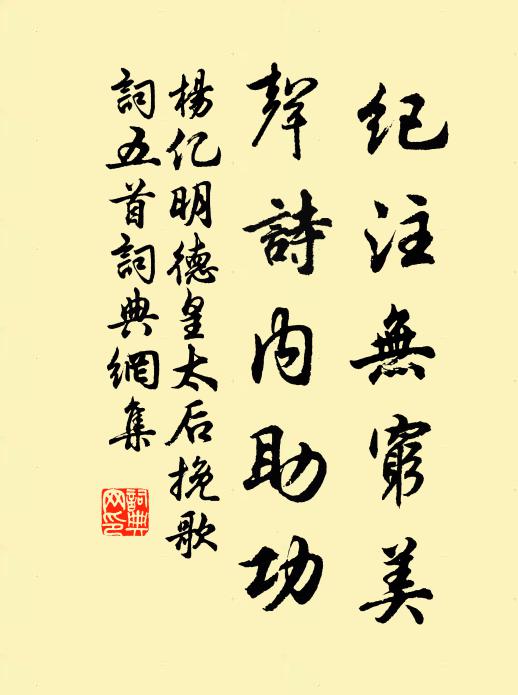 紀注無窮美
聲詩內助功
楊億明德皇太后挽歌
詞五首詞典網集
詞典网印